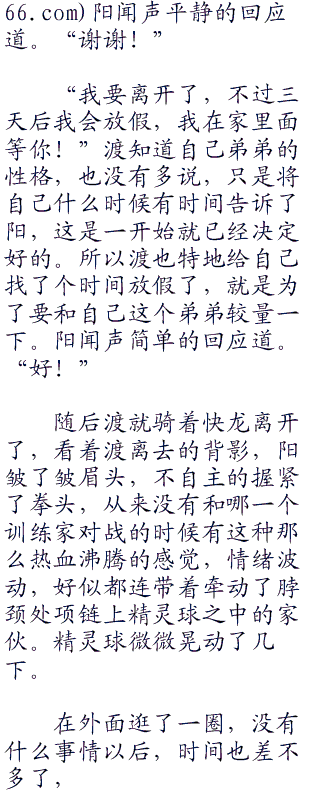 66.com)阳闻声平静的回应
道。“谢谢!”
“我要离开了，不过三
天后我会放假，我在家里面
等你!”渡知道自己弟弟的
性格，也没有多说，只是将
自己什么时候有时间告诉了
阳，这是一开始就已经决定
好的。所以渡也特地给自己
找了个时间放假了，就是为
了要和自己这个弟弟较量一
下。阳闻声简单的回应道。
“好!”
随后渡就骑着快龙离开
了，看着渡离去的背影，阳
皱了皱眉头，不自主的握紧
了拳头，从来没有和哪一个
训练家对战的时候有这种那
么热血沸腾的感觉，情绪波
动，好似都连带着牵动了脖
颈处项链上精灵球之中的家
伙。精灵球微微晃动了几
下。
在外面逛了一圈，没有
什么事情以后，时间也差不
多了，